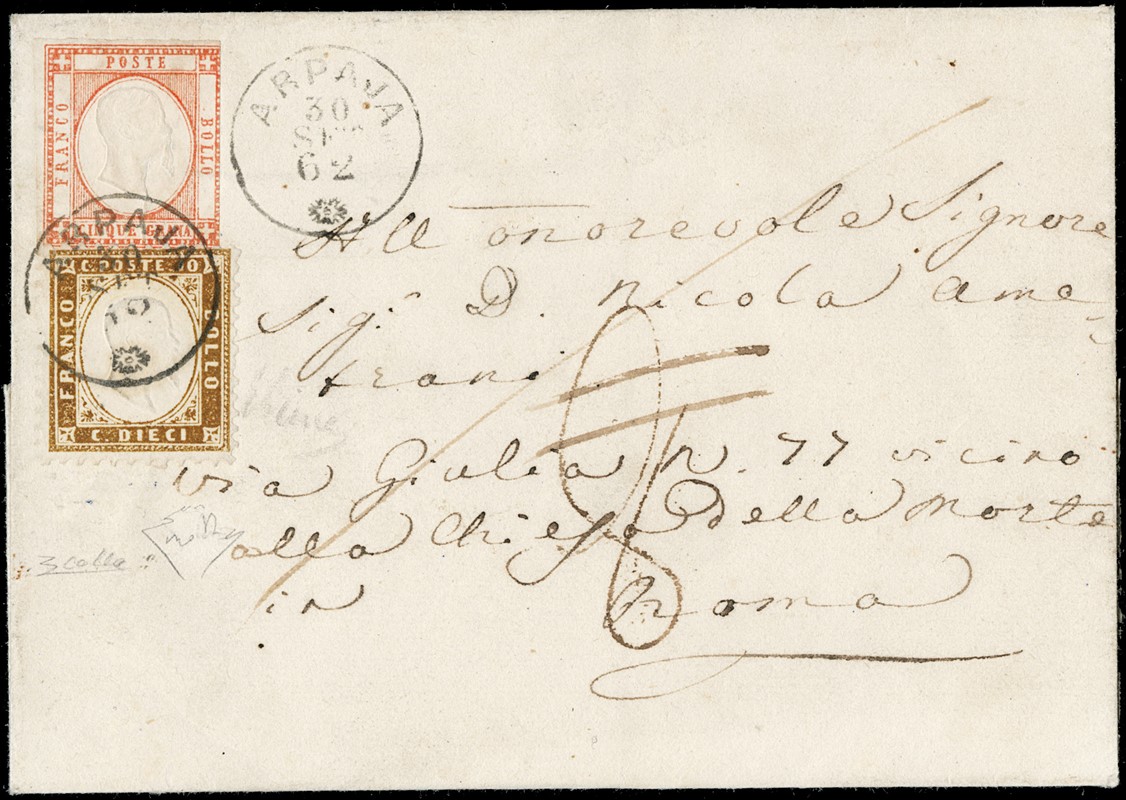 POSTE
FRANCO
BOLLO
ARPAJA
30
SET
62
ARPAJA
30
SET
C. POSTE 10
FRANCO
BOLLO
C. DIECI
All onorevole Signore
Sig. D. Nicola Ama
trani
via Giulia N. 77 vicino
alla Chiesa della Morte
in Roma
8